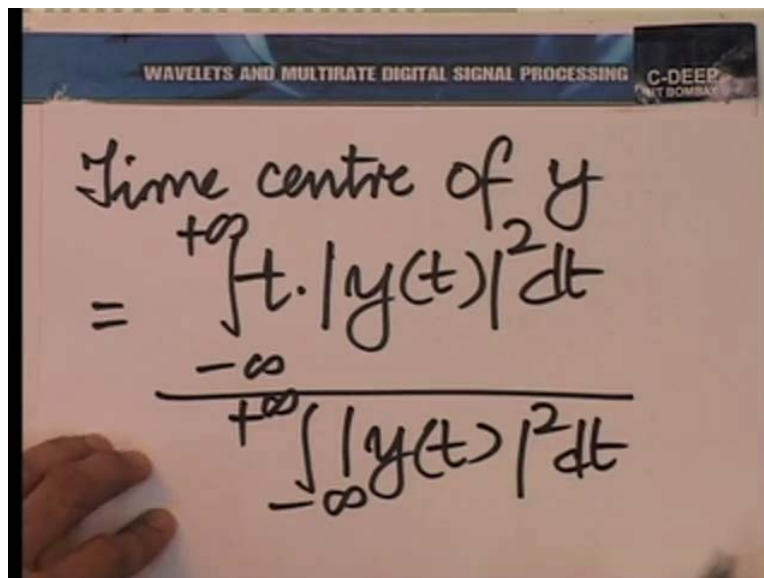 WAVELETS AND MULTIRATE DIGITAL SIGNAL PROCESSING
C-DEEP
IIT BOMBAY
Time centre of y
+∞
∫ t. |y(t)|² dt
=
-∞
+∞
∫ |y(t)|² dt
-∞